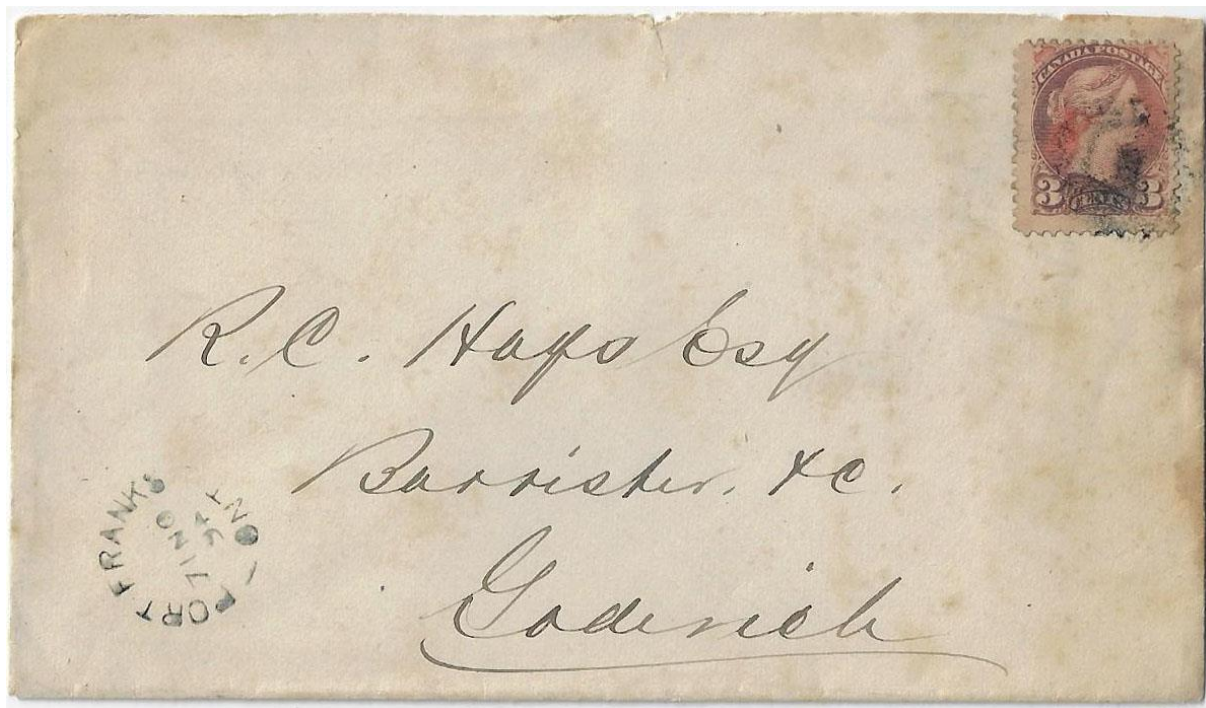 CANADA POSTAGE
3 CENTS 3
R. C. Hays Esq
Barrister. &c.
Goderich
PORT FRANKS
ONT
NO
94